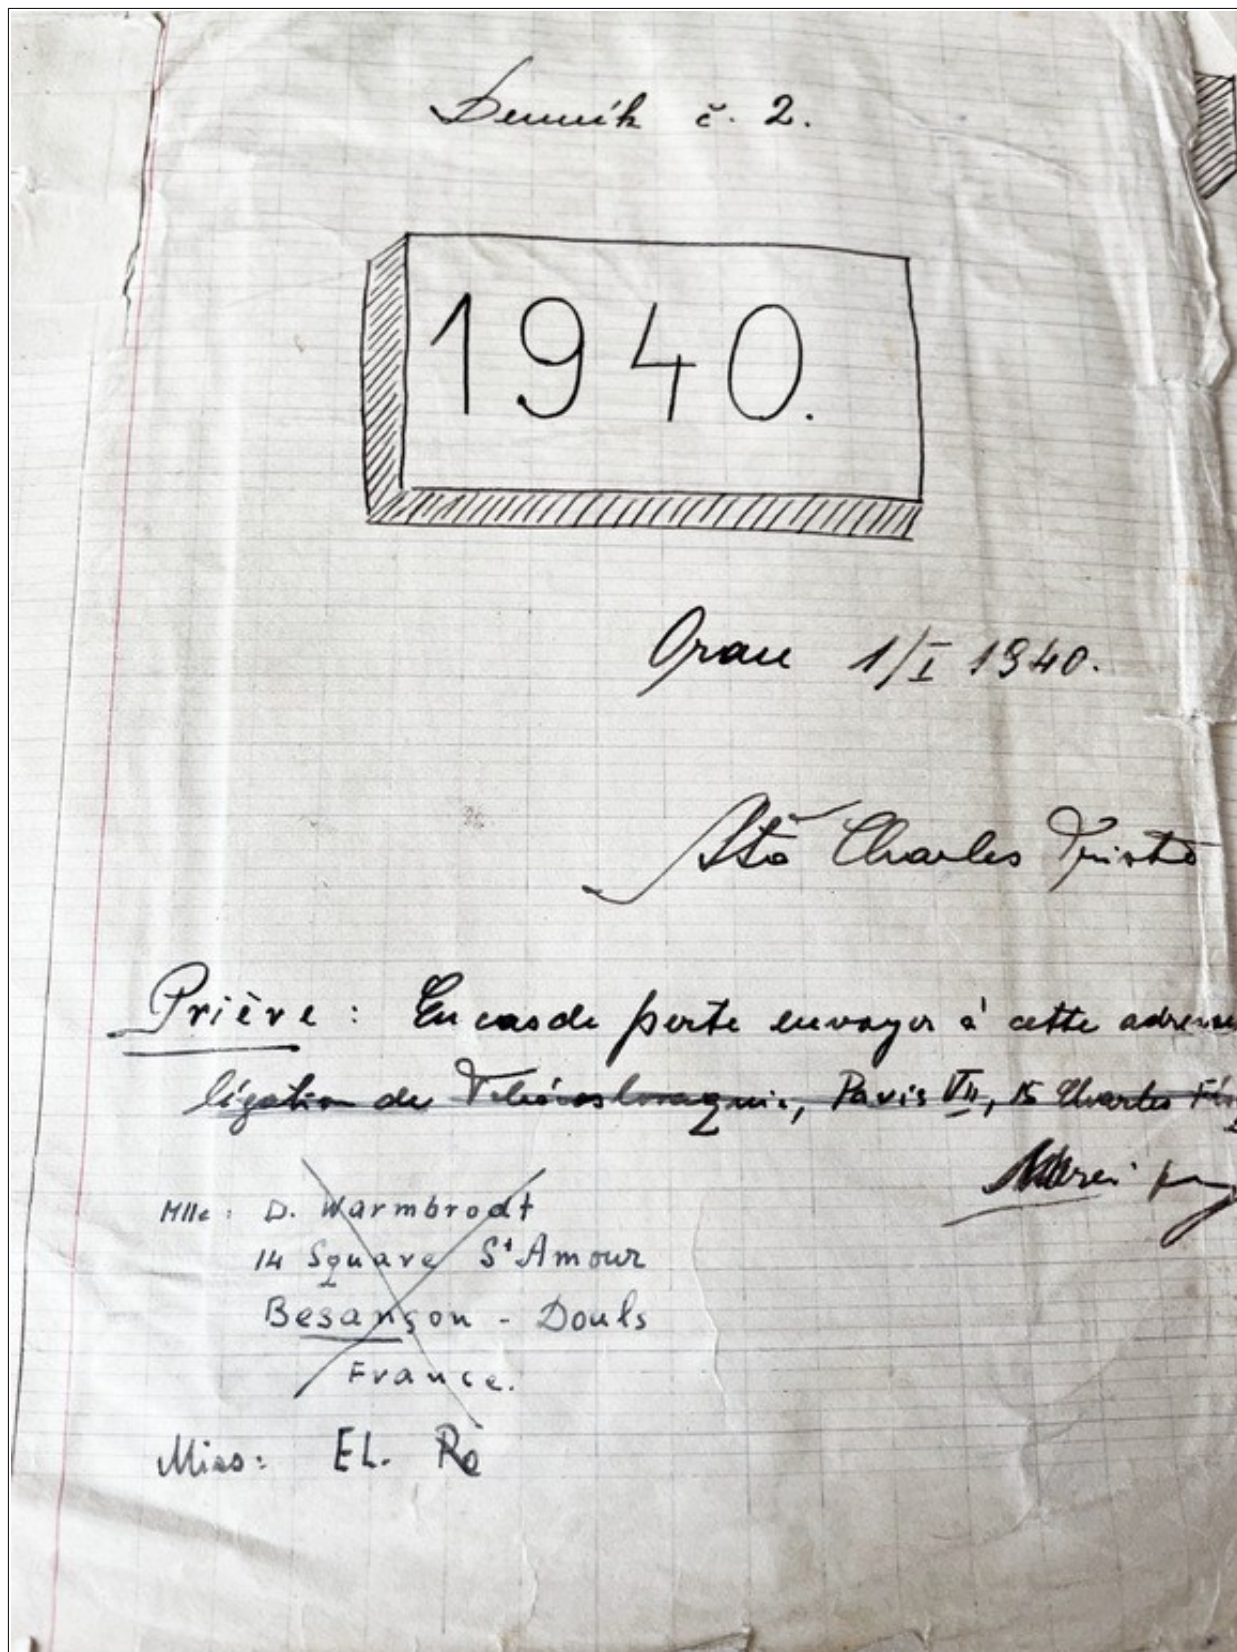 Denník č. 2.
1940.
Oran 1/I 1940.
Charles
Prière : En cas de perte envoyer à cette adresse
légation de Paris VII, 15 Charles
Mlle : D. Warmbrodt
14 Square St Amour
Besançon - Doubs
France.
Miss: EL. Ro